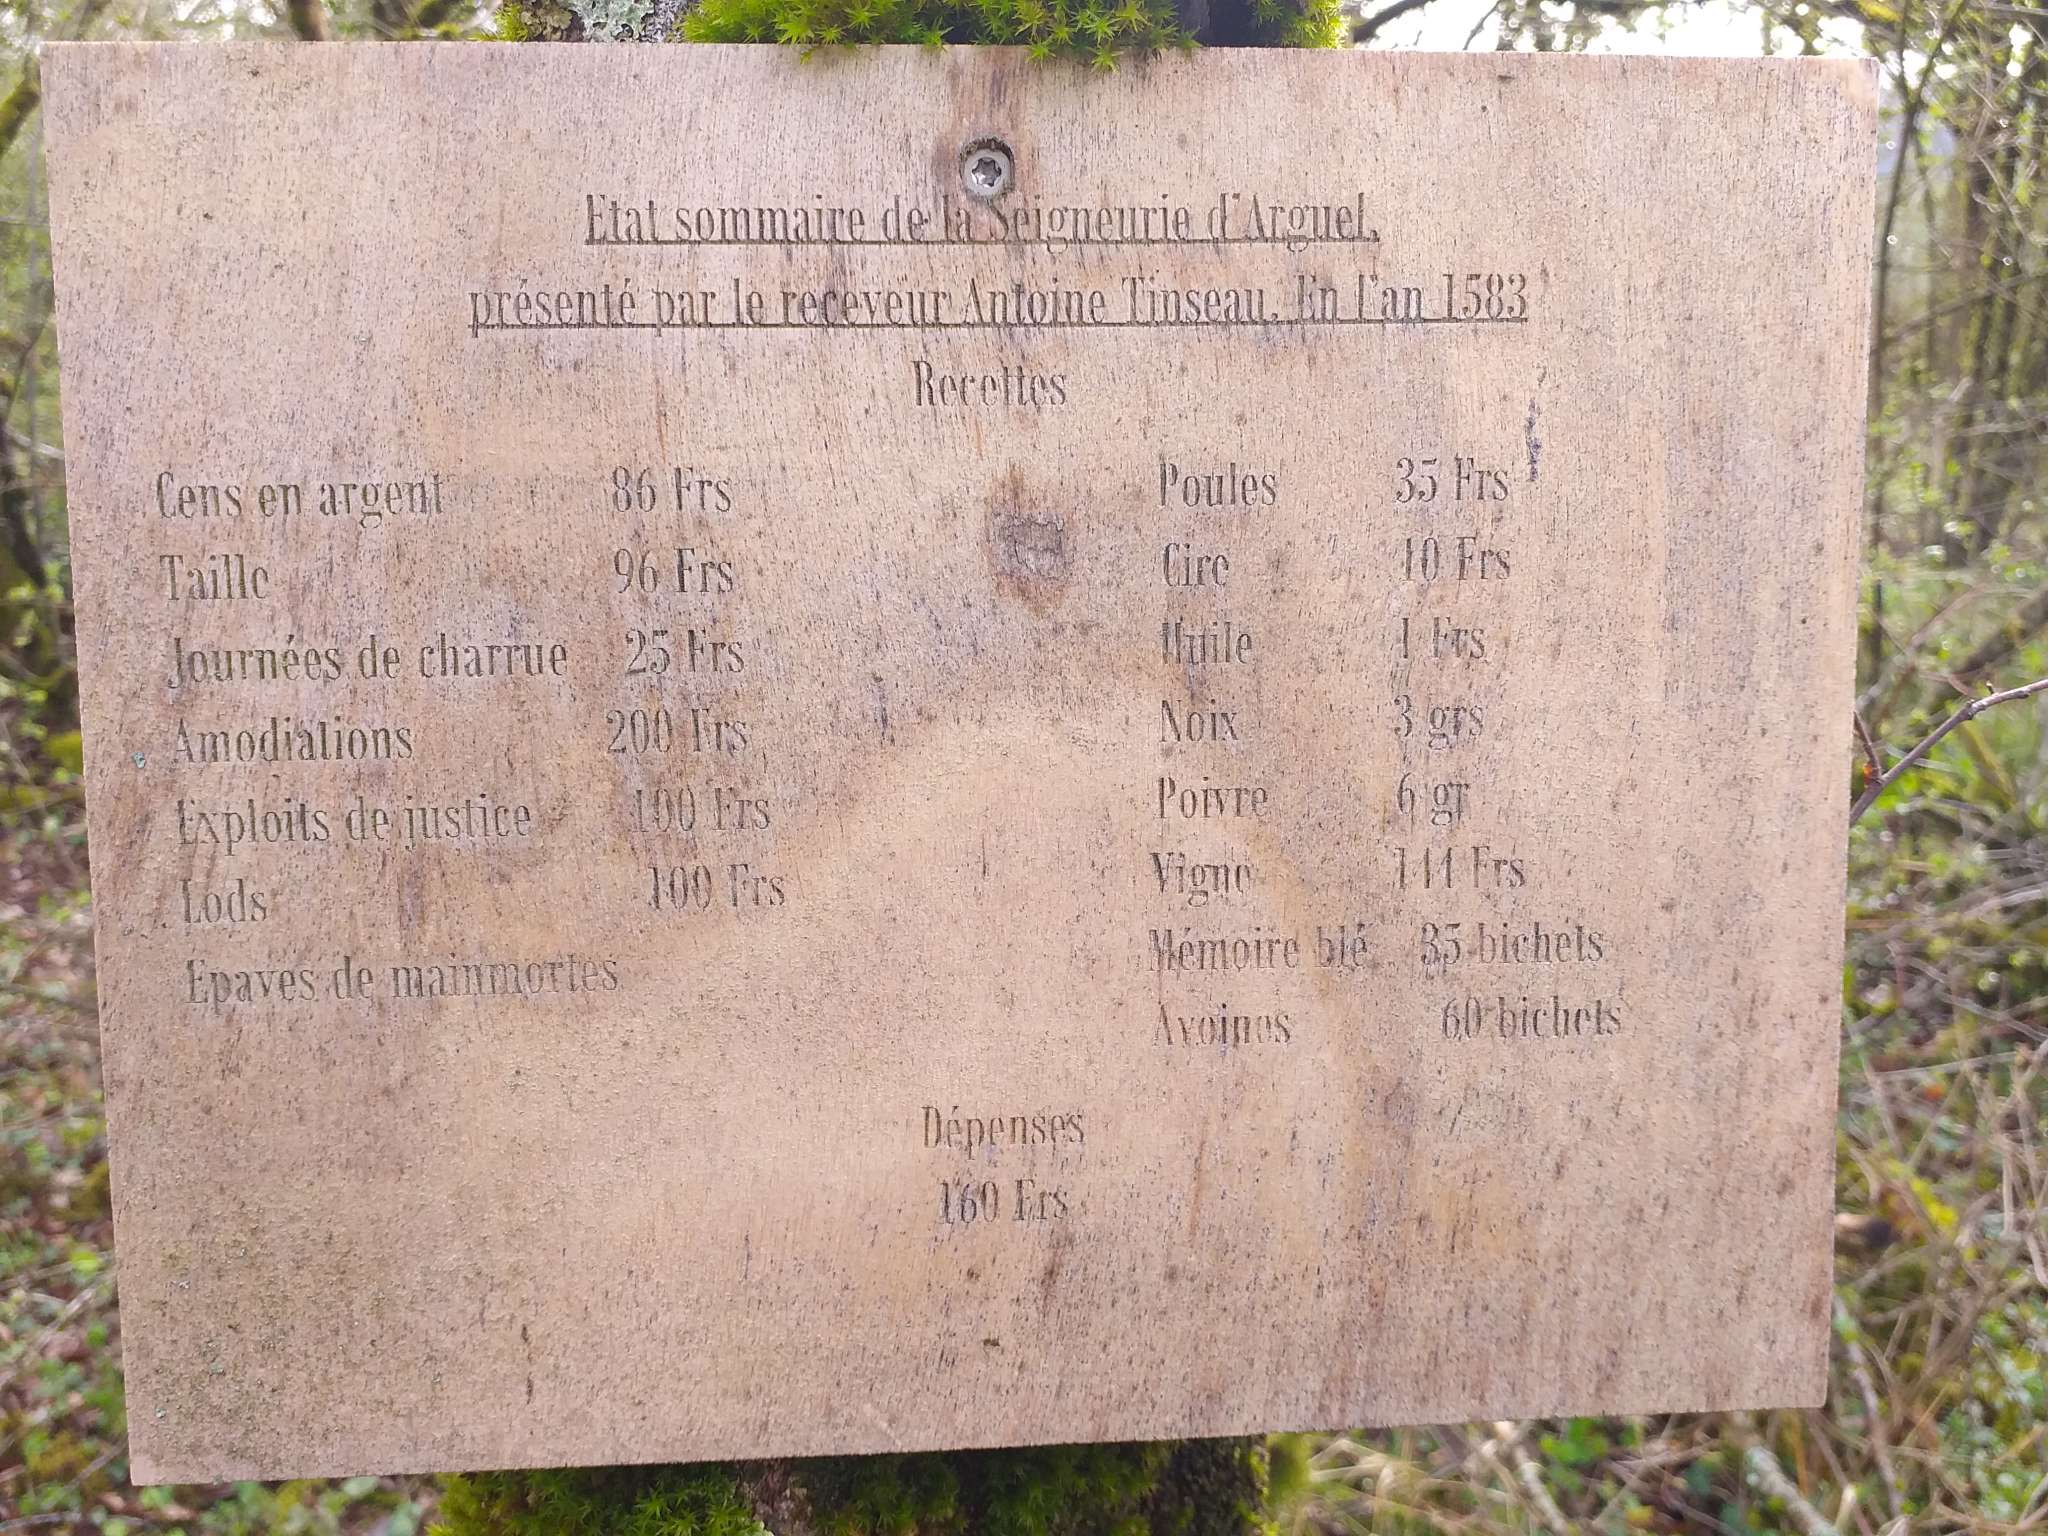 Etat sommaire de la Seigneurie d'Arguel,
présenté par le receveur Antoine Tinseau. En l'an 1583
Recettes
Cens en argent 86 Frs
Taille 96 Frs
Journées de charrue 25 Frs
Amodiations 200 Frs
Exploits de justice 100 Frs
Lods 100 Frs
Epaves de mainmortes
Poules 35 Frs
Cire 10 Frs
Huile 1 Frs
Noix 3 grs
Poivre 6 gr
Vigne Frs
Mémoire blé 35 bichets
Avoines 60 bichets
Dépenses
160 Frs